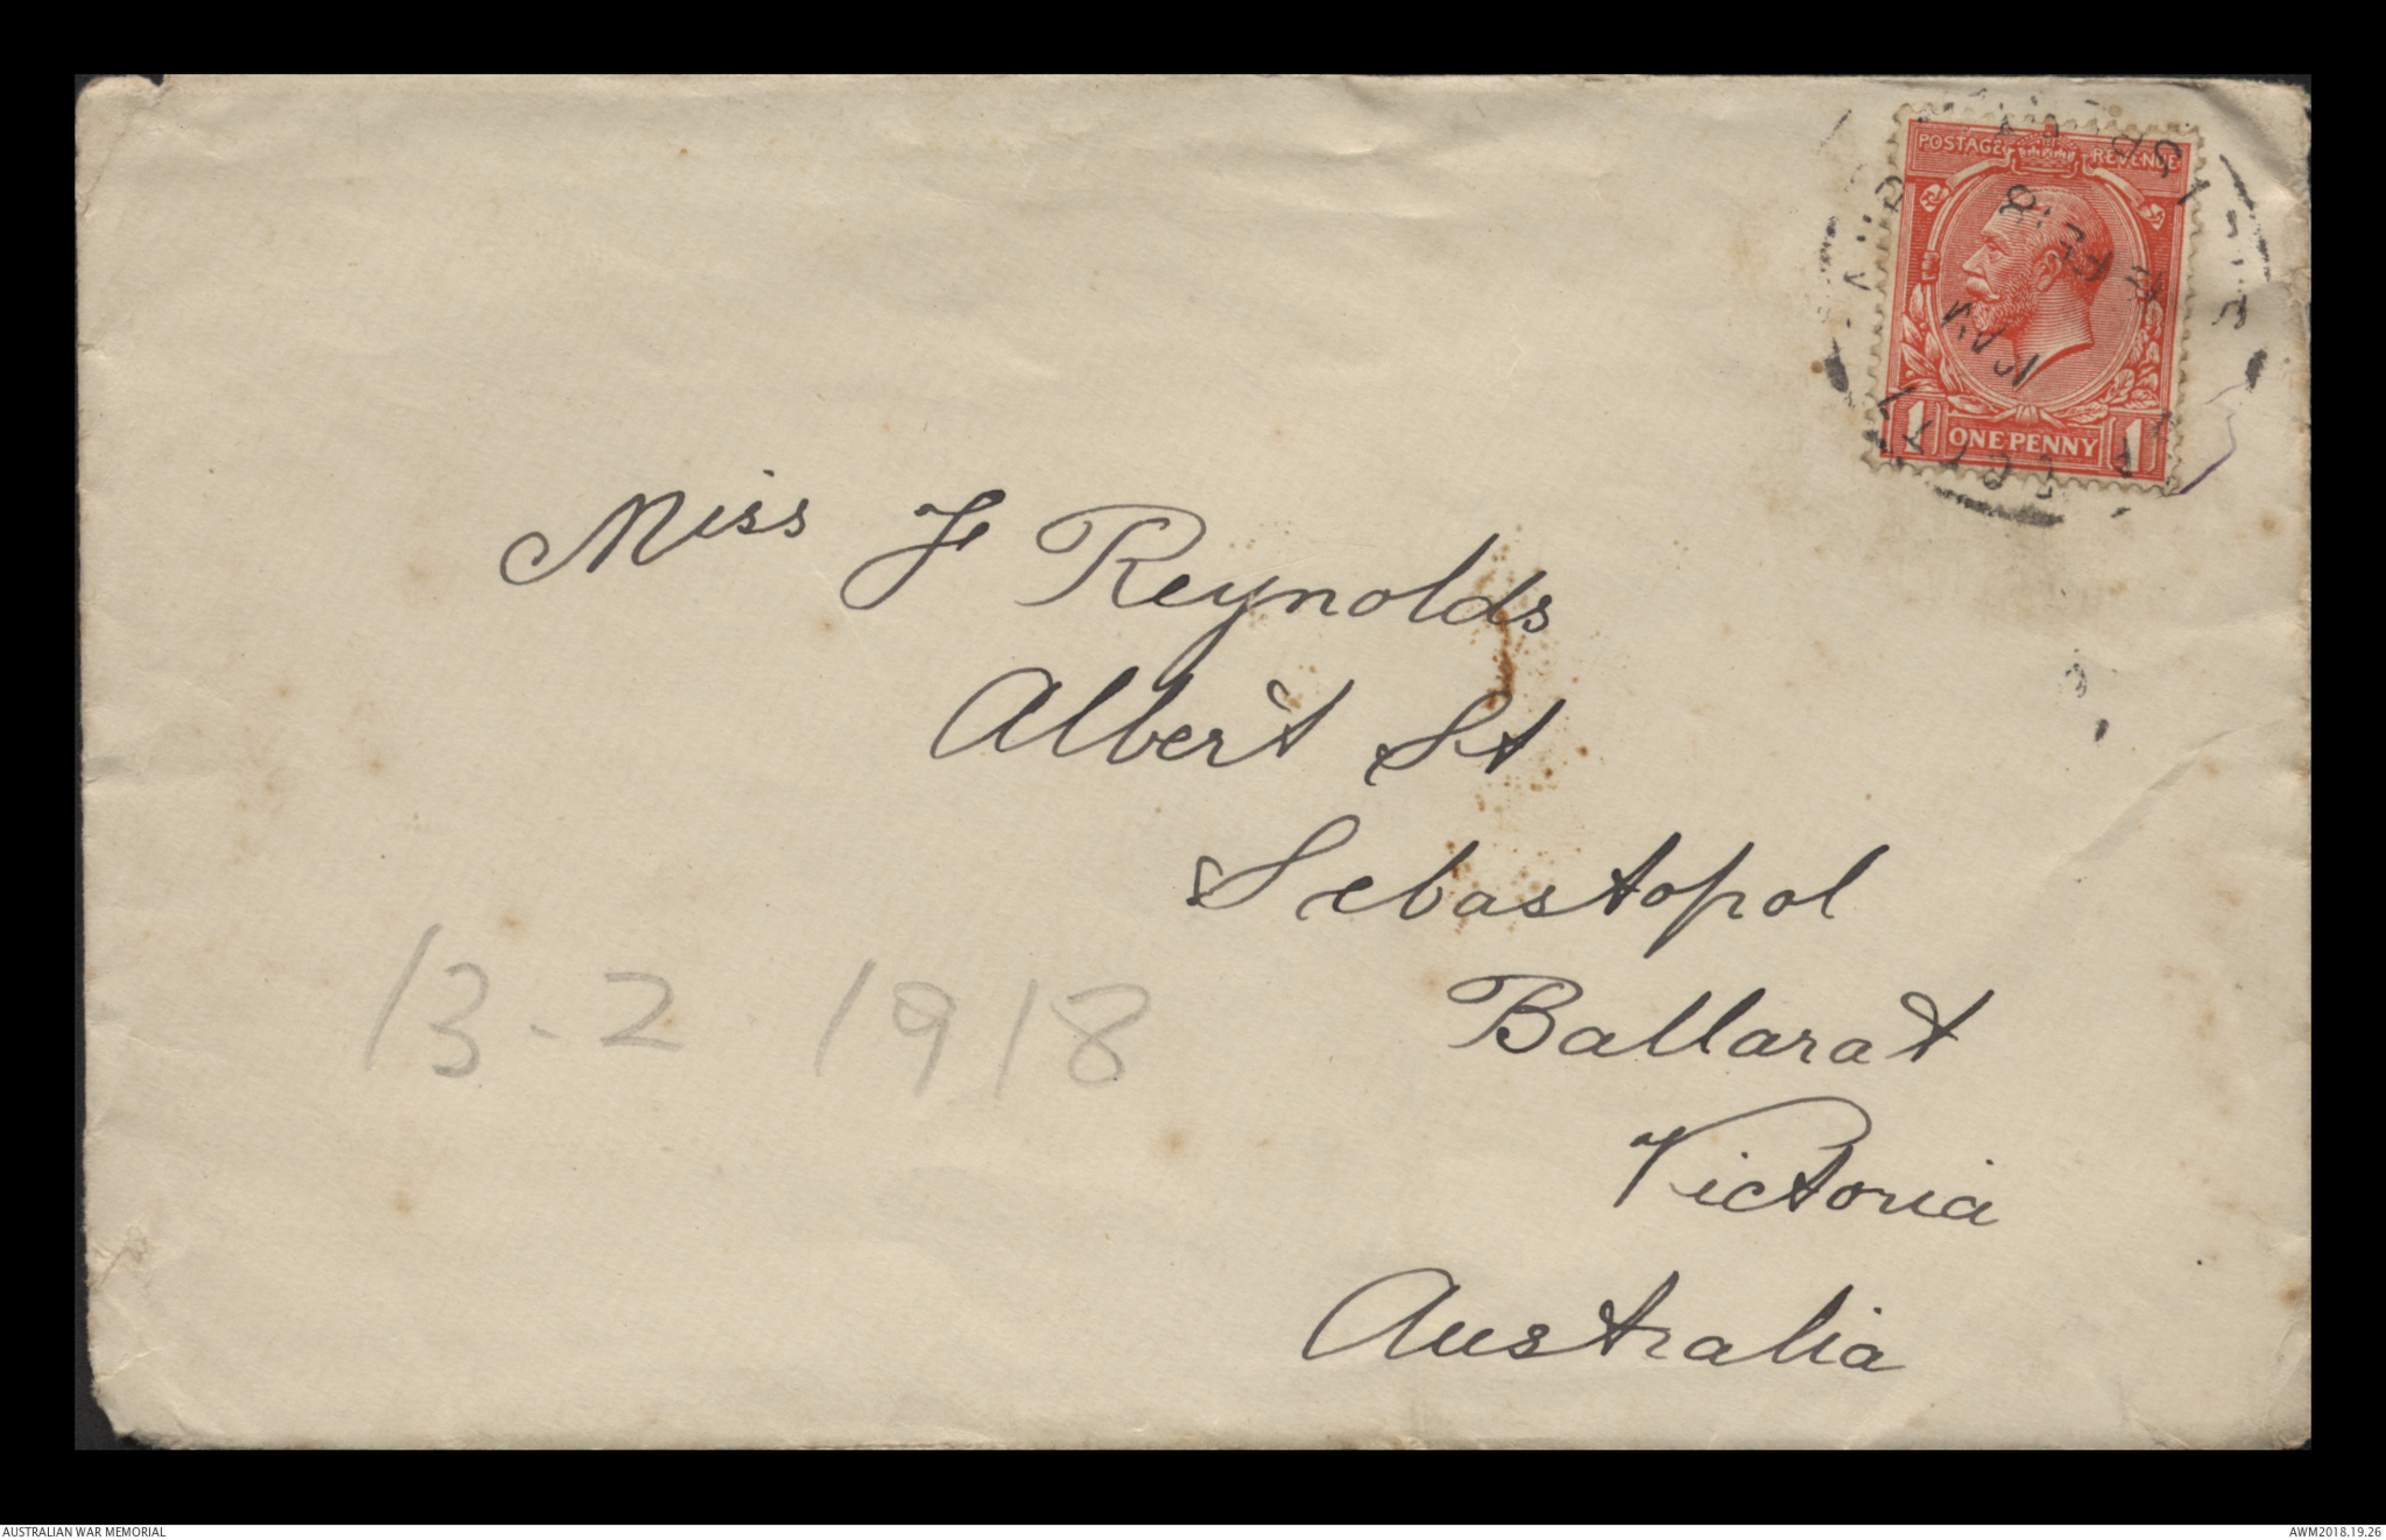 POSTAGE REVENUE
1 ONE PENNY 1
Miss F Reynolds
Albert St
Sebastopol
Ballarat
Victoria
Australia
13-2 1918
AUSTRALIAN WAR MEMORIAL
AWM2018.19.26